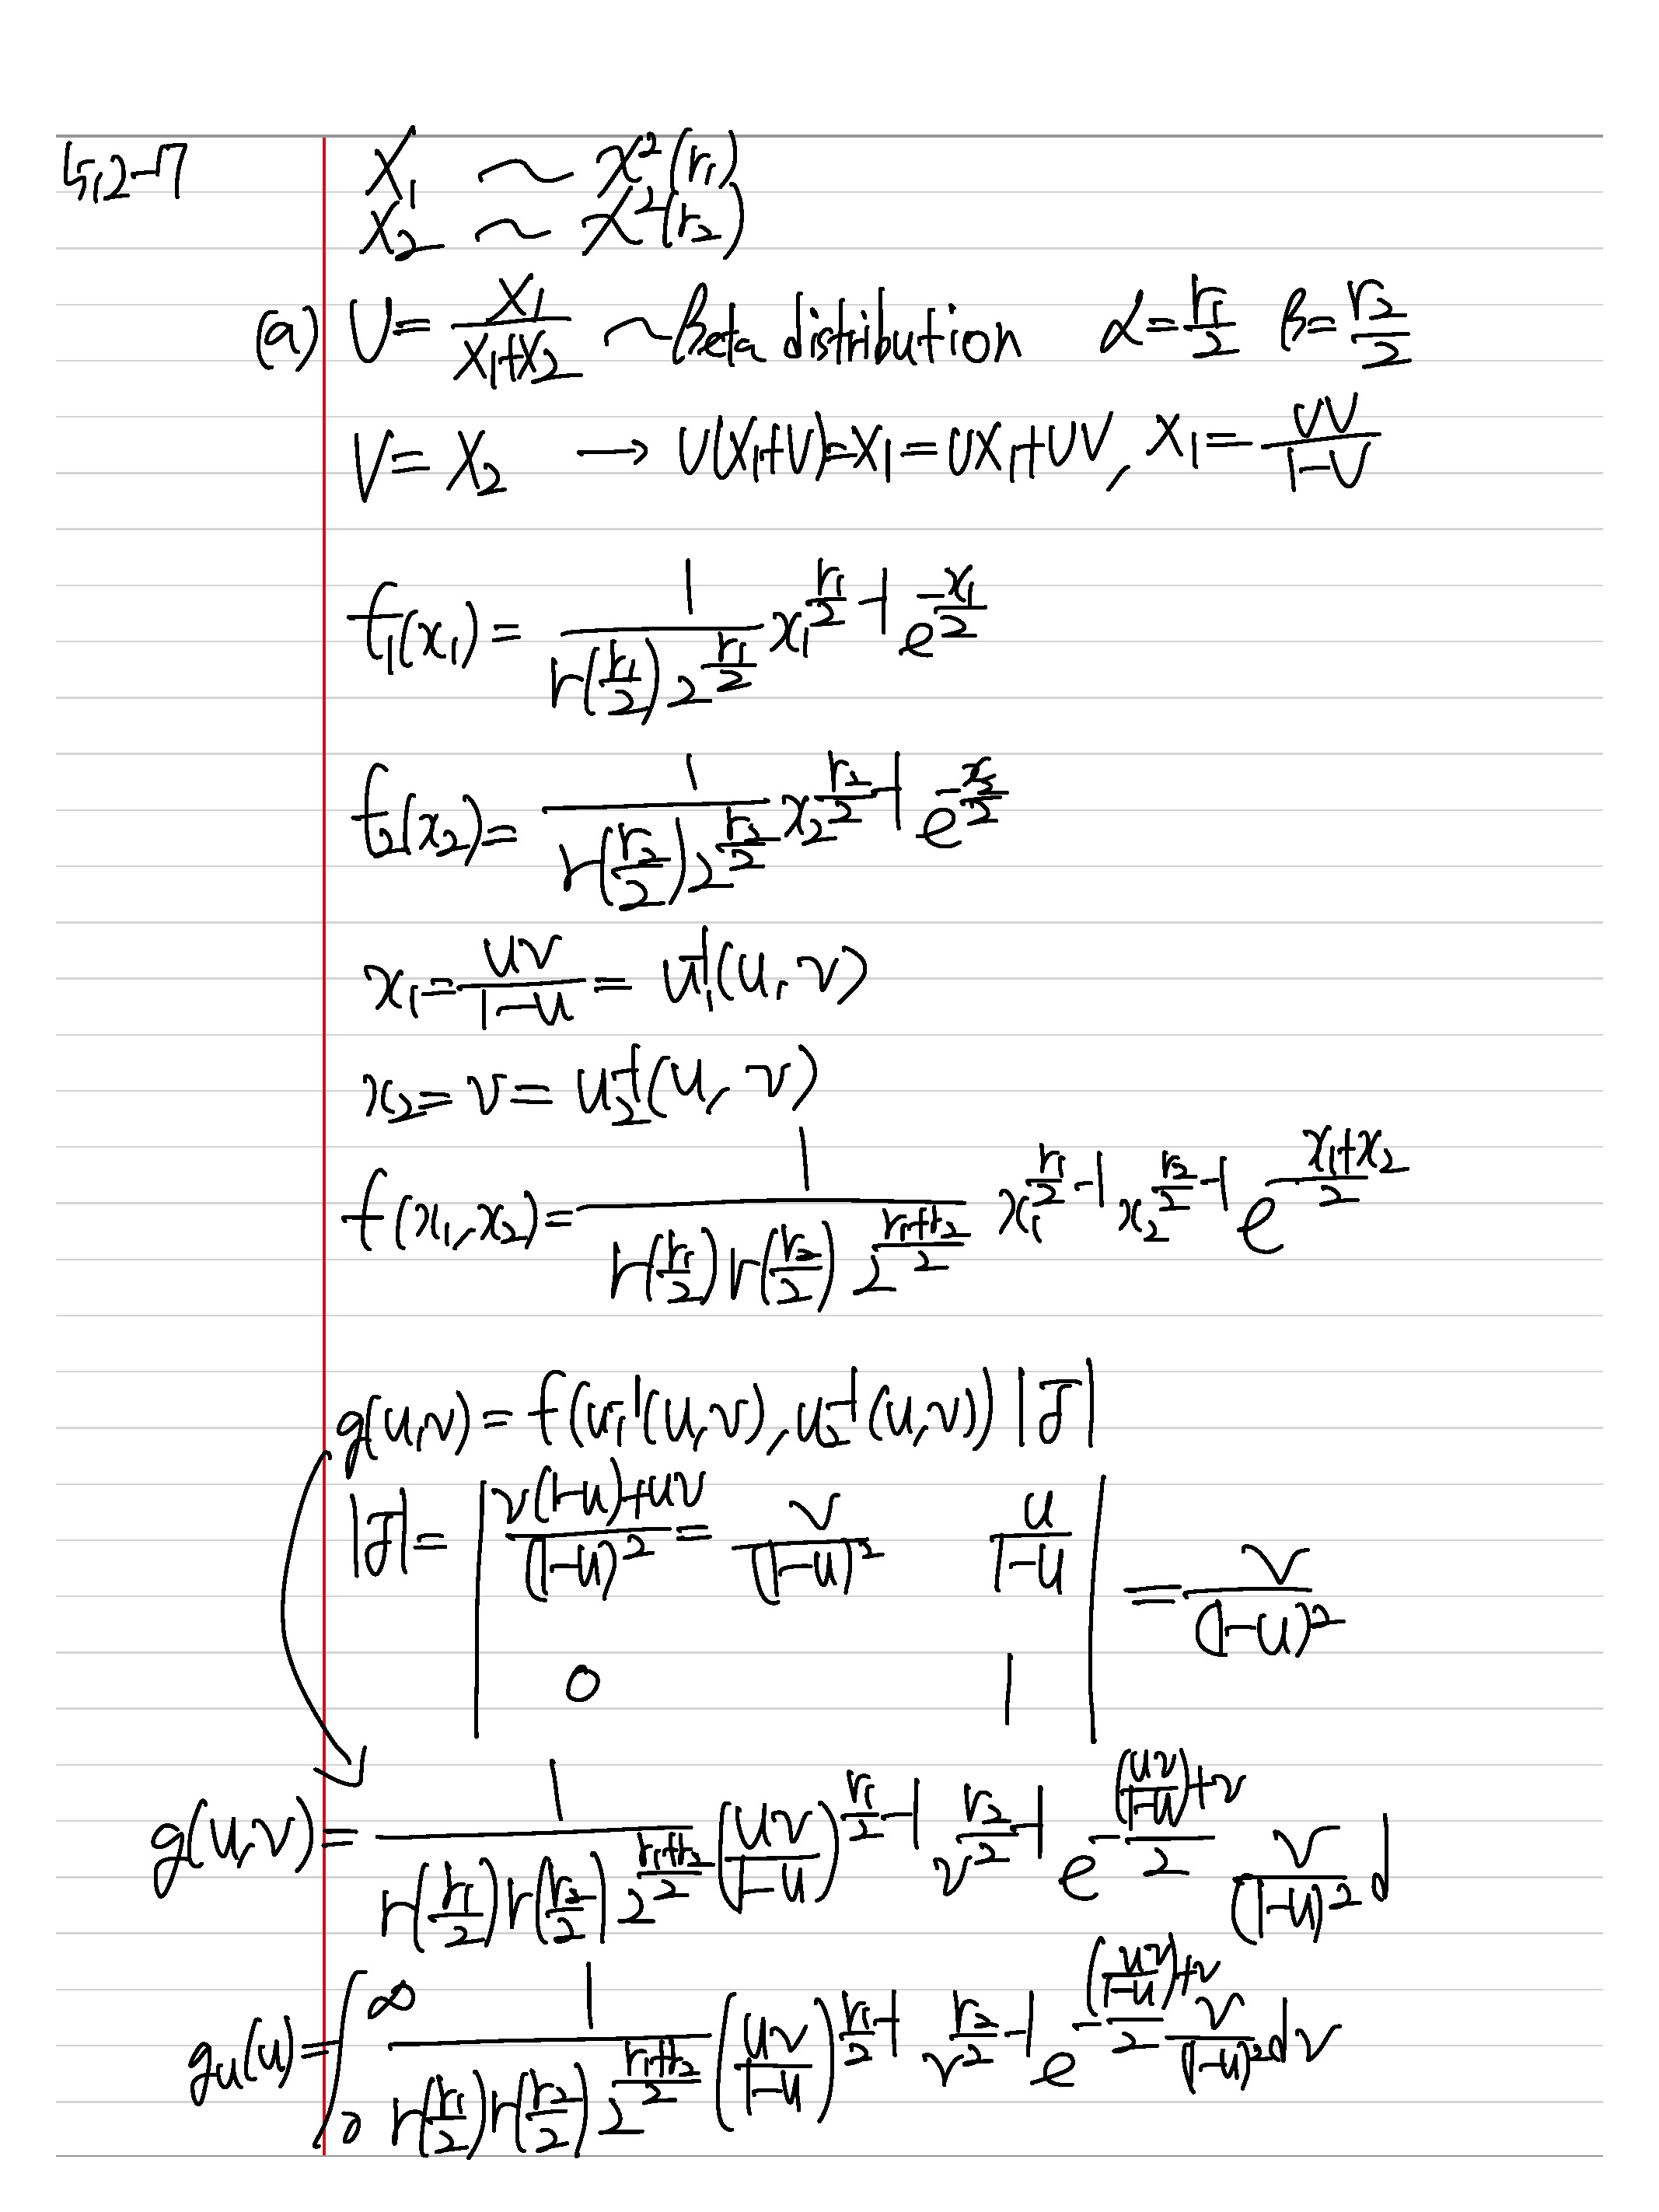 5.2-7 X₁ ~ χ²(r₁)
X₂ ~ χ²(r₂)
(a) U = X₁/(X₁+X₂) ~ Beta distribution α = r₁/2 β = r₂/2
V = X₂ → U(X₁+V) = X₁ = UX₁+UV, X₁ = UV/(1-U)
f₁(x₁) = 1/(Γ(r₁/2) 2^(r₁/2)) x₁^(r₁/2 -1) e^(-x₁/2)
f₂(x₂) = 1/(Γ(r₂/2) 2^(r₂/2)) x₂^(r₂/2 -1) e^(-x₂/2)
x₁ = uv/(1-u) = u₁⁻¹(u, v)
x₂ = v = u₂⁻¹(u, v)
f(x₁, x₂) = 1/(Γ(r₁/2) Γ(r₂/2) 2^((r₁+r₂)/2)) x₁^(r₁/2 -1) x₂^(r₂/2 -1) e^(-(x₁+x₂)/2)
g(u,v) = f(u₁⁻¹(u,v), u₂⁻¹(u,v)) |J|
|J| = | (v(1-u)+uv)/(1-u)² = v/(1-u)² u/(1-u) | = v/(1-u)²
0 1
g(u,v) = 1/(Γ(r₁/2) Γ(r₂/2) 2^((r₁+r₂)/2)) (uv/(1-u))^(r₁/2 -1) v^(r₂/2 -1) e^(-((uv/(1-u))+v)/2) v/(1-u)² d
g_u(u) = ∫₀^∞ 1/(Γ(r₁/2) Γ(r₂/2) 2^((r₁+r₂)/2)) (uv/(1-u))^(r₁/2 -1) v^(r₂/2 -1) e^(-((uv/(1-u))+v)/2) v/(1-u)² dv